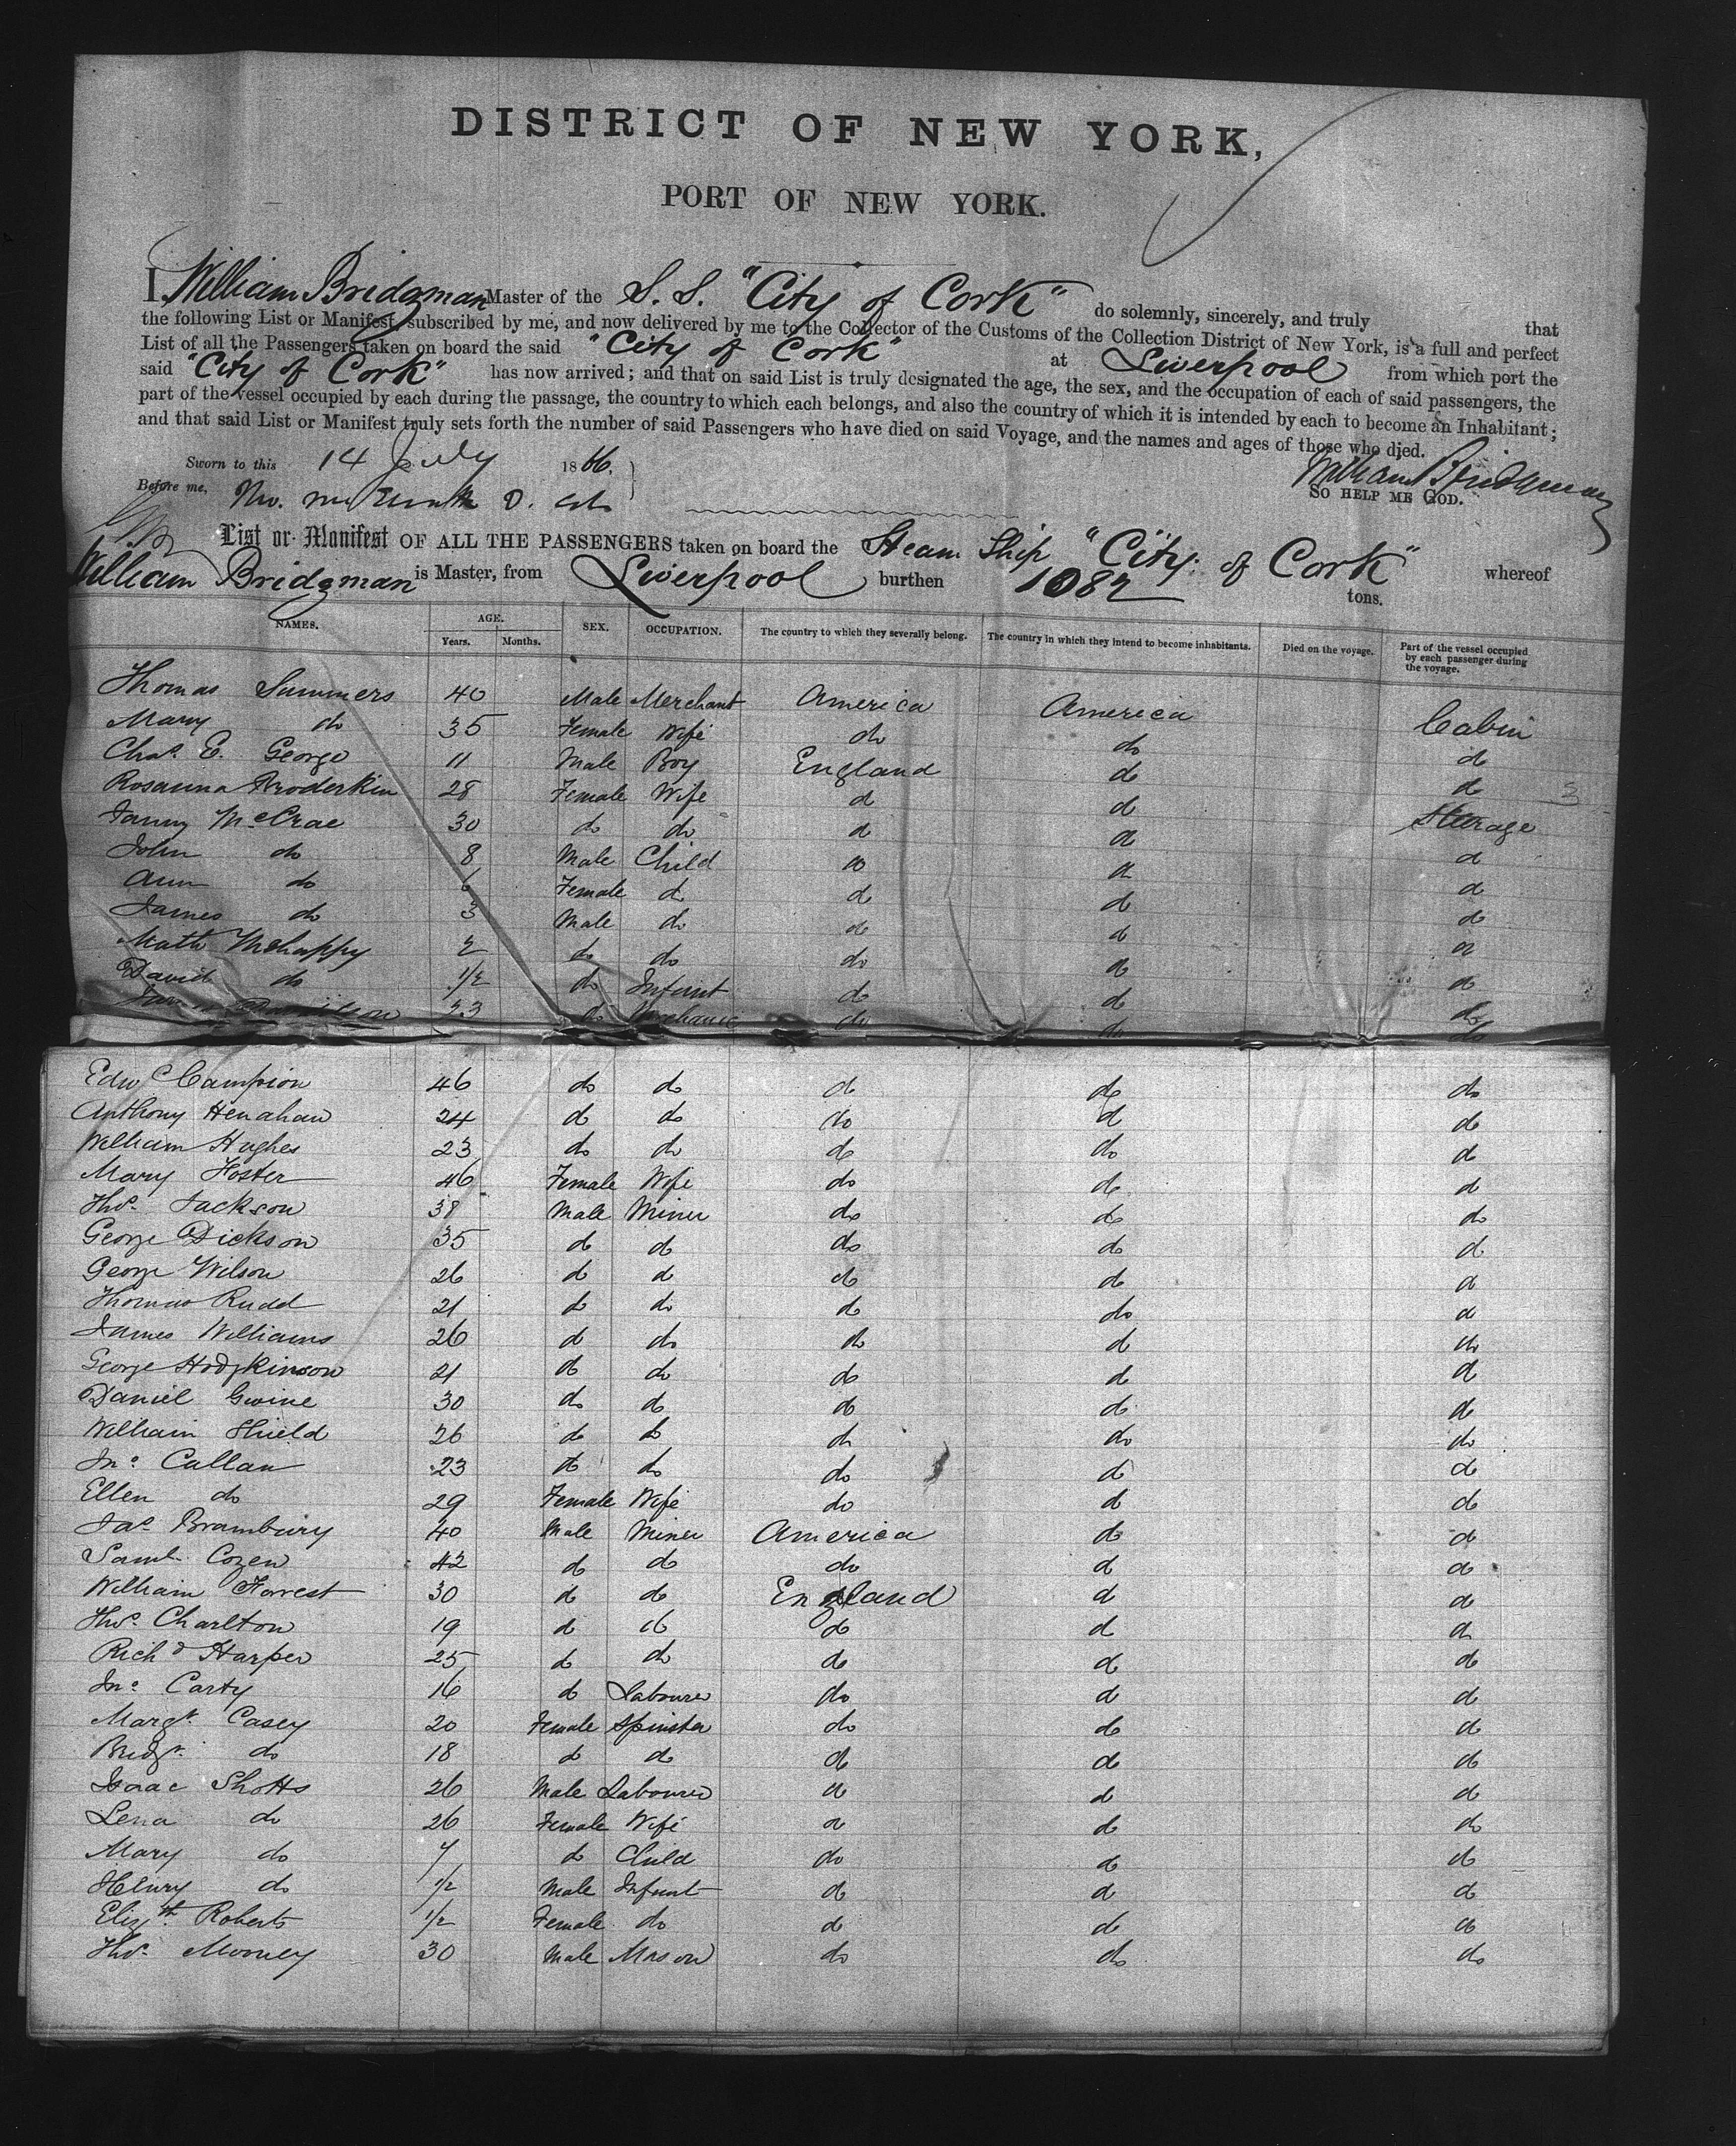 DISTRICT OF NEW YORK,
PORT OF NEW YORK.
I, William Bridgman Master of the S. S. "City of Cork" do solemnly, sincerely, and truly that
the following List or Manifest, subscribed by me, and now delivered by me to the Collector of the Customs of the Collection District of New York, is a full and perfect
List of all the Passengers taken on board the said "City of Cork" at Liverpool from which port the
said "City of Cork" has now arrived; and that on said List is truly designated the age, the sex, and the occupation of each of said passengers, the
part of the vessel occupied by each during the passage, the country to which each belongs, and also the country of which it is intended by each to become an Inhabitant;
and that said List or Manifest truly sets forth the number of said Passengers who have died on said Voyage, and the names and ages of those who died.
Sworn to this 14 July 1866. William Bridgman
Before me, SO HELP ME GOD.
List or Manifest OF ALL THE PASSENGERS taken on board the Steam Ship "City of Cork" whereof
William Bridgman is Master, from Liverpool burthen 1082 tons.
NAMES. AGE. Years. Months. SEX. OCCUPATION. The country to which they severally belong. The country in which they intend to become inhabitants. Died on the voyage. Part of the vessel occupied by each passenger during the voyage.
Thomas Summers 40 Male Merchant America America Cabin
Mary do 35 Female Wife do do do
Chas. E. George 11 Male Boy England do do
Rosanna 28 Female Wife do do Steerage
Fanny McCrae 30 do do do do do
John do 8 Male Child do do do
Ann do 6 Female do do do do
James do 3 Male do do do do
Math Mehappy 2 do do do do do
David do 1/2 do Infant do do do
23 do Mechanic do do do
Edwd Campion 46 do do do do do
Anthony Henahan 24 do do do do do
William Hughes 23 do do do do do
Mary Foster 46 Female Wife do do do
Thos. Jackson 38 Male Miner do do do
George Dickson 35 do do do do do
George Wilson 26 do do do do do
Thomas Rudd 21 do do do do do
James Williams 26 do do do do do
George Hodgkinson 21 do do do do do
Daniel Gwine 30 do do do do do
William Shield 26 do do do do do
Jno. Callan 23 do do do do do
Ellen do 29 Female Wife do do do
Jas. Brambury 40 Male Miner America do do
Saml. Cozen 42 do do do do do
William Forrest 30 do do England do do
Thos. Charlton 19 do do do do do
Richd Harper 25 do do do do do
Jno. Carty 16 do Labourer do do do
Margt. Casey 20 Female Spinster do do do
Bridgt. do 18 do do do do do
Isaac Shotts 26 Male Labourer do do do
Lena do 26 Female Wife do do do
Mary do 7 do Child do do do
Henry do 1/2 Male Infant do do do
Elizth. Roberts 1/2 Female do do do do
Thos. Mooney 30 Male Mason do do do